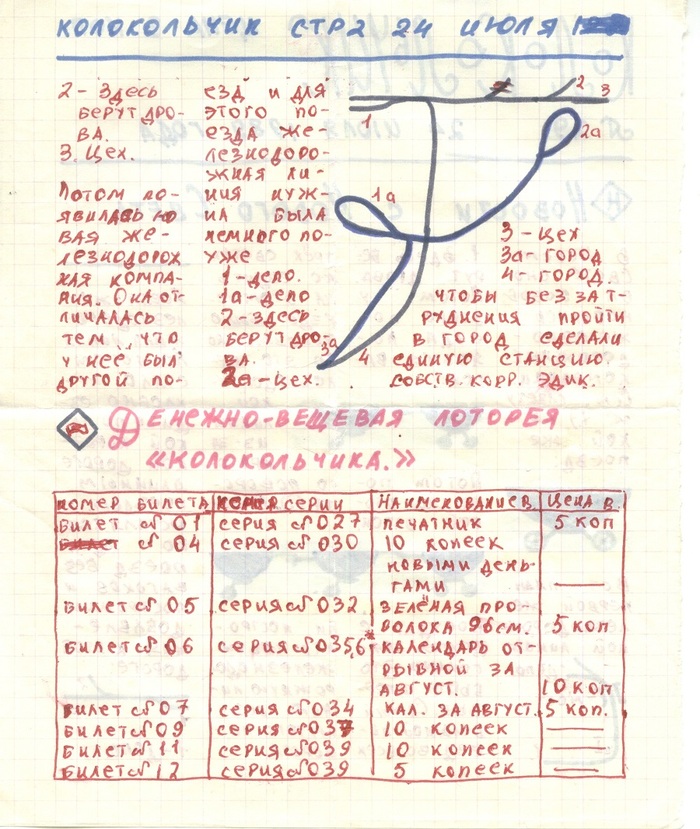 КОЛОКОЛЬЧИК СТР2 24 ИЮЛЯ
2 - Здесь
берут дро-
ва.
3. Цех.
Потом по-
явилась но
вая же-
лезнодорож
ная компа-
ния. Она от-
личалась
тем, что
у неё был
другой по-
езд и для
этого по-
езда же-
лезнодоро-
жная ли-
ния нуж-
на была
немного по-
уже
1-депо.
1а-депо
2-здесь
берут дро-
ва.
2а-цех.
1
2
3
2а
1а
3а
4
3-цех
3а-город
4-город.
чтобы без зат-
руднения пройти
в город сделали
единую станцию.
собств. корр. Эдик.
Денежно-вещевая лоторея
«Колокольчика.»
номер билета
серии
Наименование в.
Цена в.
билет № 01 серия № 027 печатник 5 коп
билет № 04 серия № 030 10 копеек
новыми день-
гами —
билет № 05 серия № 032 зелёная про
волока 96см. 5 коп
билет № 06 серия № 035,6* календарь от
рывной за
август. 10 коп
билет № 07 серия № 034 кал. за август. 5 коп.
билет № 09 серия № 037 10 копеек —
билет № 11 серия № 039 10 копеек —
билет № 12 серия № 039 5 копеек —